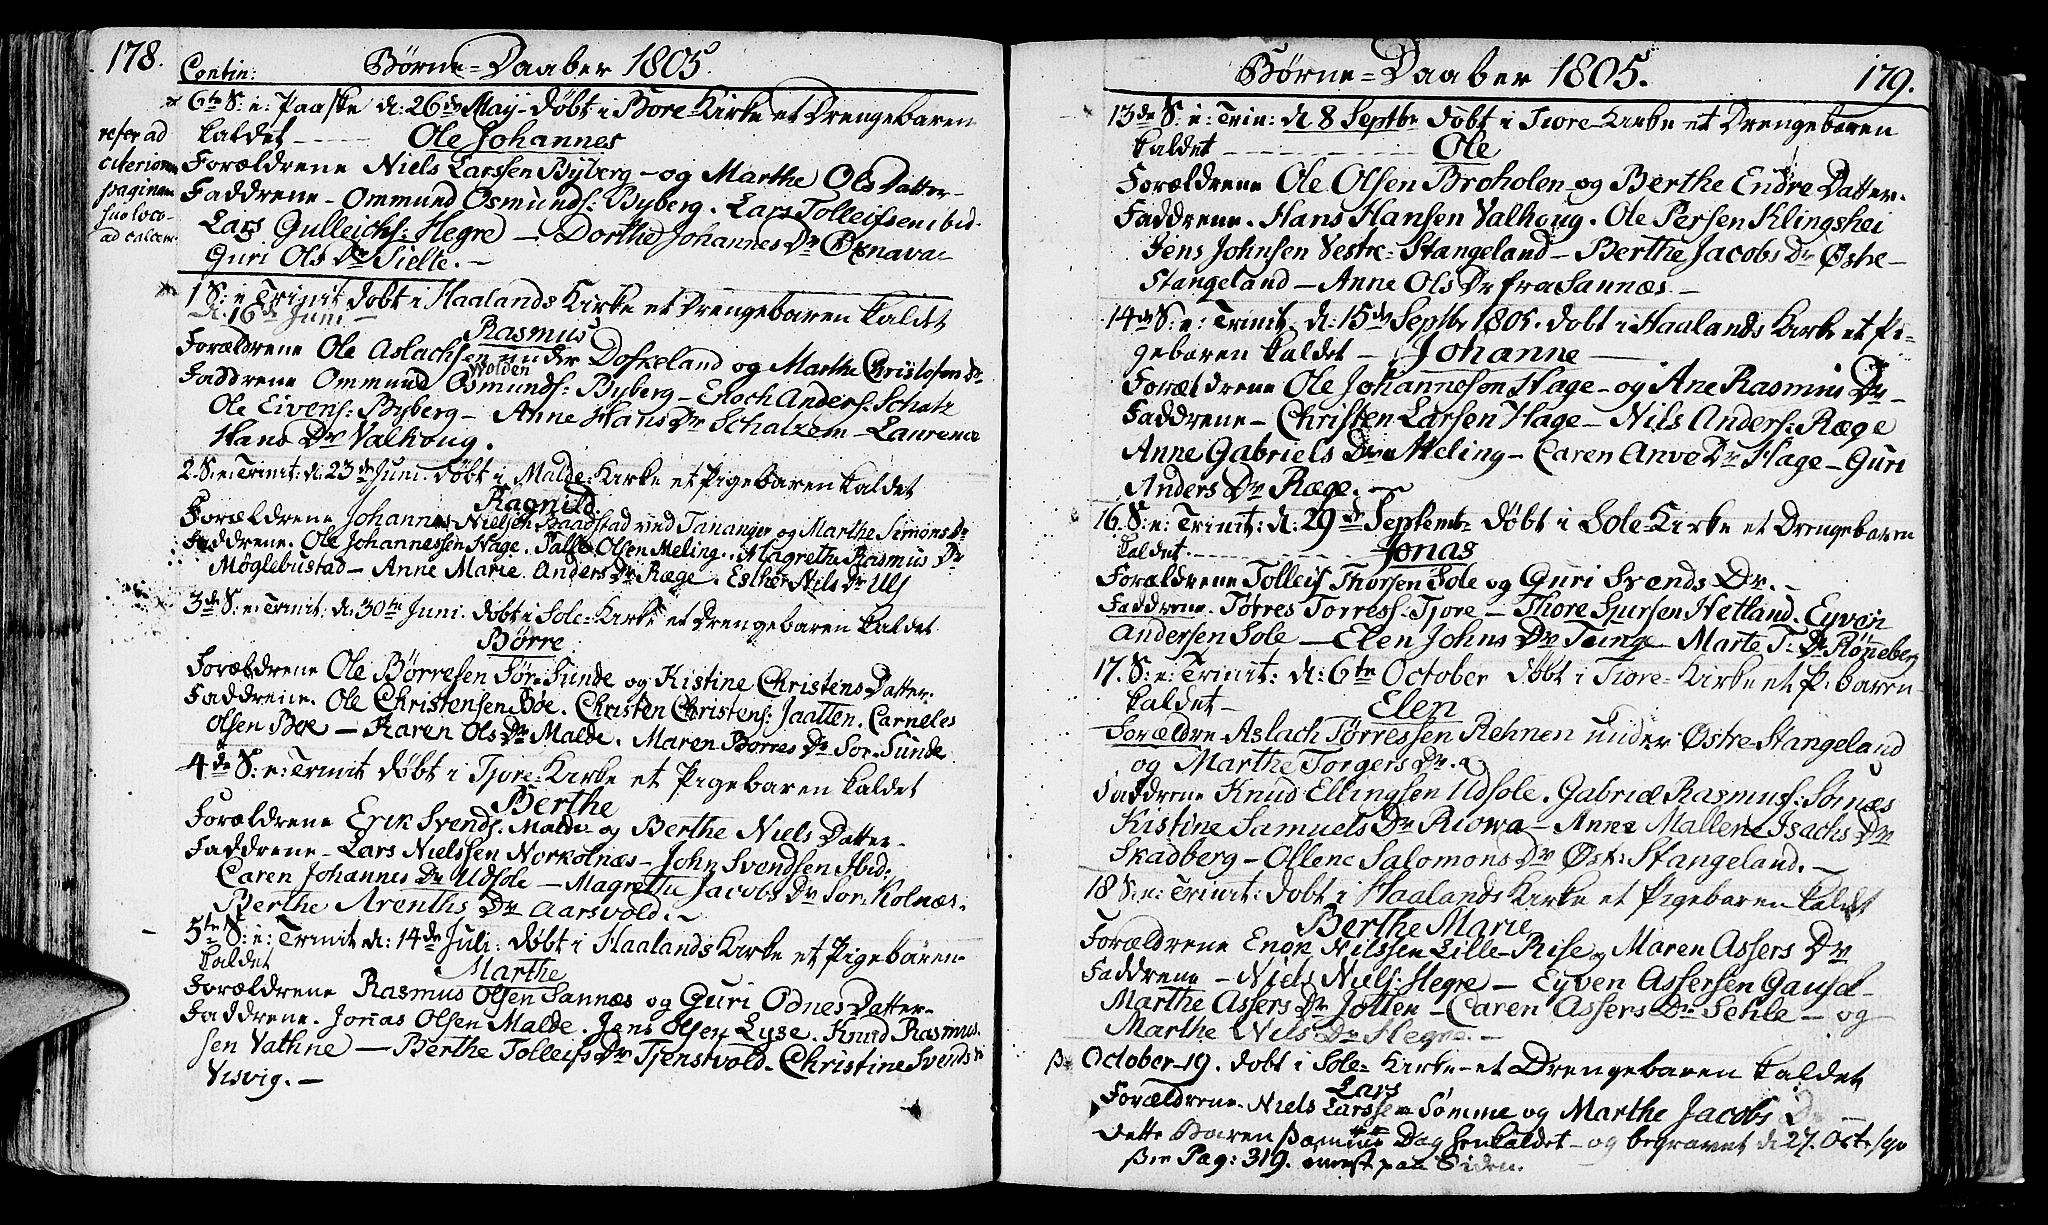 178.
Contin:
Børne=Daaber 1805.
6te S: e: Paaske d: 26de May døbt i Sore=Kirke et Drengebaren
kaldet Ole Johannes
refer ad
citeriorem
paginam
suo loco
ad calcem
Forældrene Niels Larssen Byberg - og Marthe Ols Datter -
Faddrene - Ommund Osmunds: Byberg. Lars Tolleifsen ibid.
Lars Gulleichs: Hegre - Dorthe Johannes Dr Oxnavar
Guri Ols Dr Sielte. -
1 S: e Trinit døbt i Haalands Kirke et Drengebaren kaldet
d. 16de Juni -
Rasmus
Forældrene Ole Aslachsen under Dofkeland og Marthe Christofers Dr.
Wolden
Faddrene Ommund Osmunds: Byberg - Enoch Anders: Schatz
Ole Eivens: Byberg - Anne Hans Dr Schatzem - Laurence
Hans Dr Valhoug.
2. S: e: Trinit: d: 23de Juni. døbt i Malde=Kirke et Pigebaren kaldet
Ragnild.
Forældrene Johannes Nielsen Baadstad ved Tananger og Marthe Simons Dr
Faddrene. Ole Johannessen Hage. Palle Olsen Meling. Magrethe Rasmus Dr
Møglebustad - Anne Marie Anders Dr Ræge. Esther Nils Dr Ulf
3de S: e: Trinit: d. 30te Juni. døbt i Sole=Kirke et Drengebaren kaldet
Børre
Forældrene Ole Børresen Sør-Sunde og Kistine Christens Datter.
Faddrene. Ole Christensen Bøe. Christen Christens: Jaatten. Carneles
Olsen Bøe - Karen Ols Dr Malde. Maren Borres Dr Sor=Sunde
4de S: e: Trinit døbt i Tjore=Kirke et Pigebaren kaldet
Berthe
Forældrene Erik Svends. Malde og Berthe Niels Datter -
Faddrene - Lars Nielssen Norkolnæs - John Svendsen Ibid:
Caren Johannes Dr Udsole - Magrethe Jacobs Dr Sor-Kolnæs.
Berthe Arenths Dr Aarsvold. -
5te S: e: Trinit d: 14de Juli: døbt i Haalands Kirke et Pigebaren
kaldet
Marthe
Forældrene Rasmus Olsen Sannæs og Guri Odnes Datter -
Faddrene. Jonas Olsen Malde. Jens Olsen Lyse. Knud Rasmus-
sen Vathne - Berthe Tolleifs Dr Tjenstvold. Christine Svends Dr
Visvig. -
Børne=Daaber 1805.
179.
13de S: e: Trin: d 8 Septbr døbt i Tiore=Kirke et Drengebaren
kaldet Ole
Forældrene Ole Olsen Broholen og Berthe Endre Datter.
Faddrene. Hans Hansen Valhoug. Ole Persen Klingshei
Jens Johnsen Vestre=Stangeland - Berthe Jacobs Dr Østre -
Stangeland - Anne Ols Dr fra Sannæs. -
14de S: e: Trinit. d: 15de Septbr 1805. døbt i Haalands Kirke et Pi-
gebaren kaldet - Johanne
Forældrene Ole Johannesøn Hage - og Ane Rasmus Dr -
Faddrene - Christen Larsen Hage - Nils Anders: Ræge
Anne Gabriels Dr Meling - Caren Anve Dr Hage - Guri
Anders Dr Ræge. -
16. S: e: Trinit: d: 29de Septembr døbt i Sole-Kirke et Drengebaren
kaldet Jonas
Forældrene Tolleif Thorsen Sole og Guri Svends Dr. -
Faddrene. Tørres Torress: Tjore - Thore Sjursen Hetland. Eyven
Andersen Sole - Elen Johns Dr Tiinge - Marte T: Dr Røneberg
17. S: e: Trinit: d: 6te October døbt i Tiore=Kirke et P. baren
kaldet - Elen
Forældre Aslach Tørressen Rehnen under Østre-Stangeland
og Marthe Torgers Dr. -
Faddrene Knud Ellingsen Udsole. Gabriel Rasmuss: Sørnæs
Kistine Samuels Dr Riowa - Anne Mallene Isachs Dr
Skadberg - Ollene Salomons Dr Øst: Stangeland. -
18 S: e: Trinit: døbt i Haalands Kirke et Pigebaren kaldet
Berthe Marie
Forældrene Enok Nilssen Lille-Rise og Maren Assers Dr
Faddrene - Niels Niels: Hegre - Eyven Assersen Gausel -
Marthe Assers Dr Jotten - Caren Assers Dr Sehle - og
Marthe Nils Dr Hegre. -
October 19. døbt i Sole=Kirke - et Drengebaren kaldet
Lars
Forældrene. Niels Larssen Sømme og Marthe Jacobs D
dette Baren Dag henkaldet - og begravet d 27. Octr
Pag: 319. øverst paa Siden.